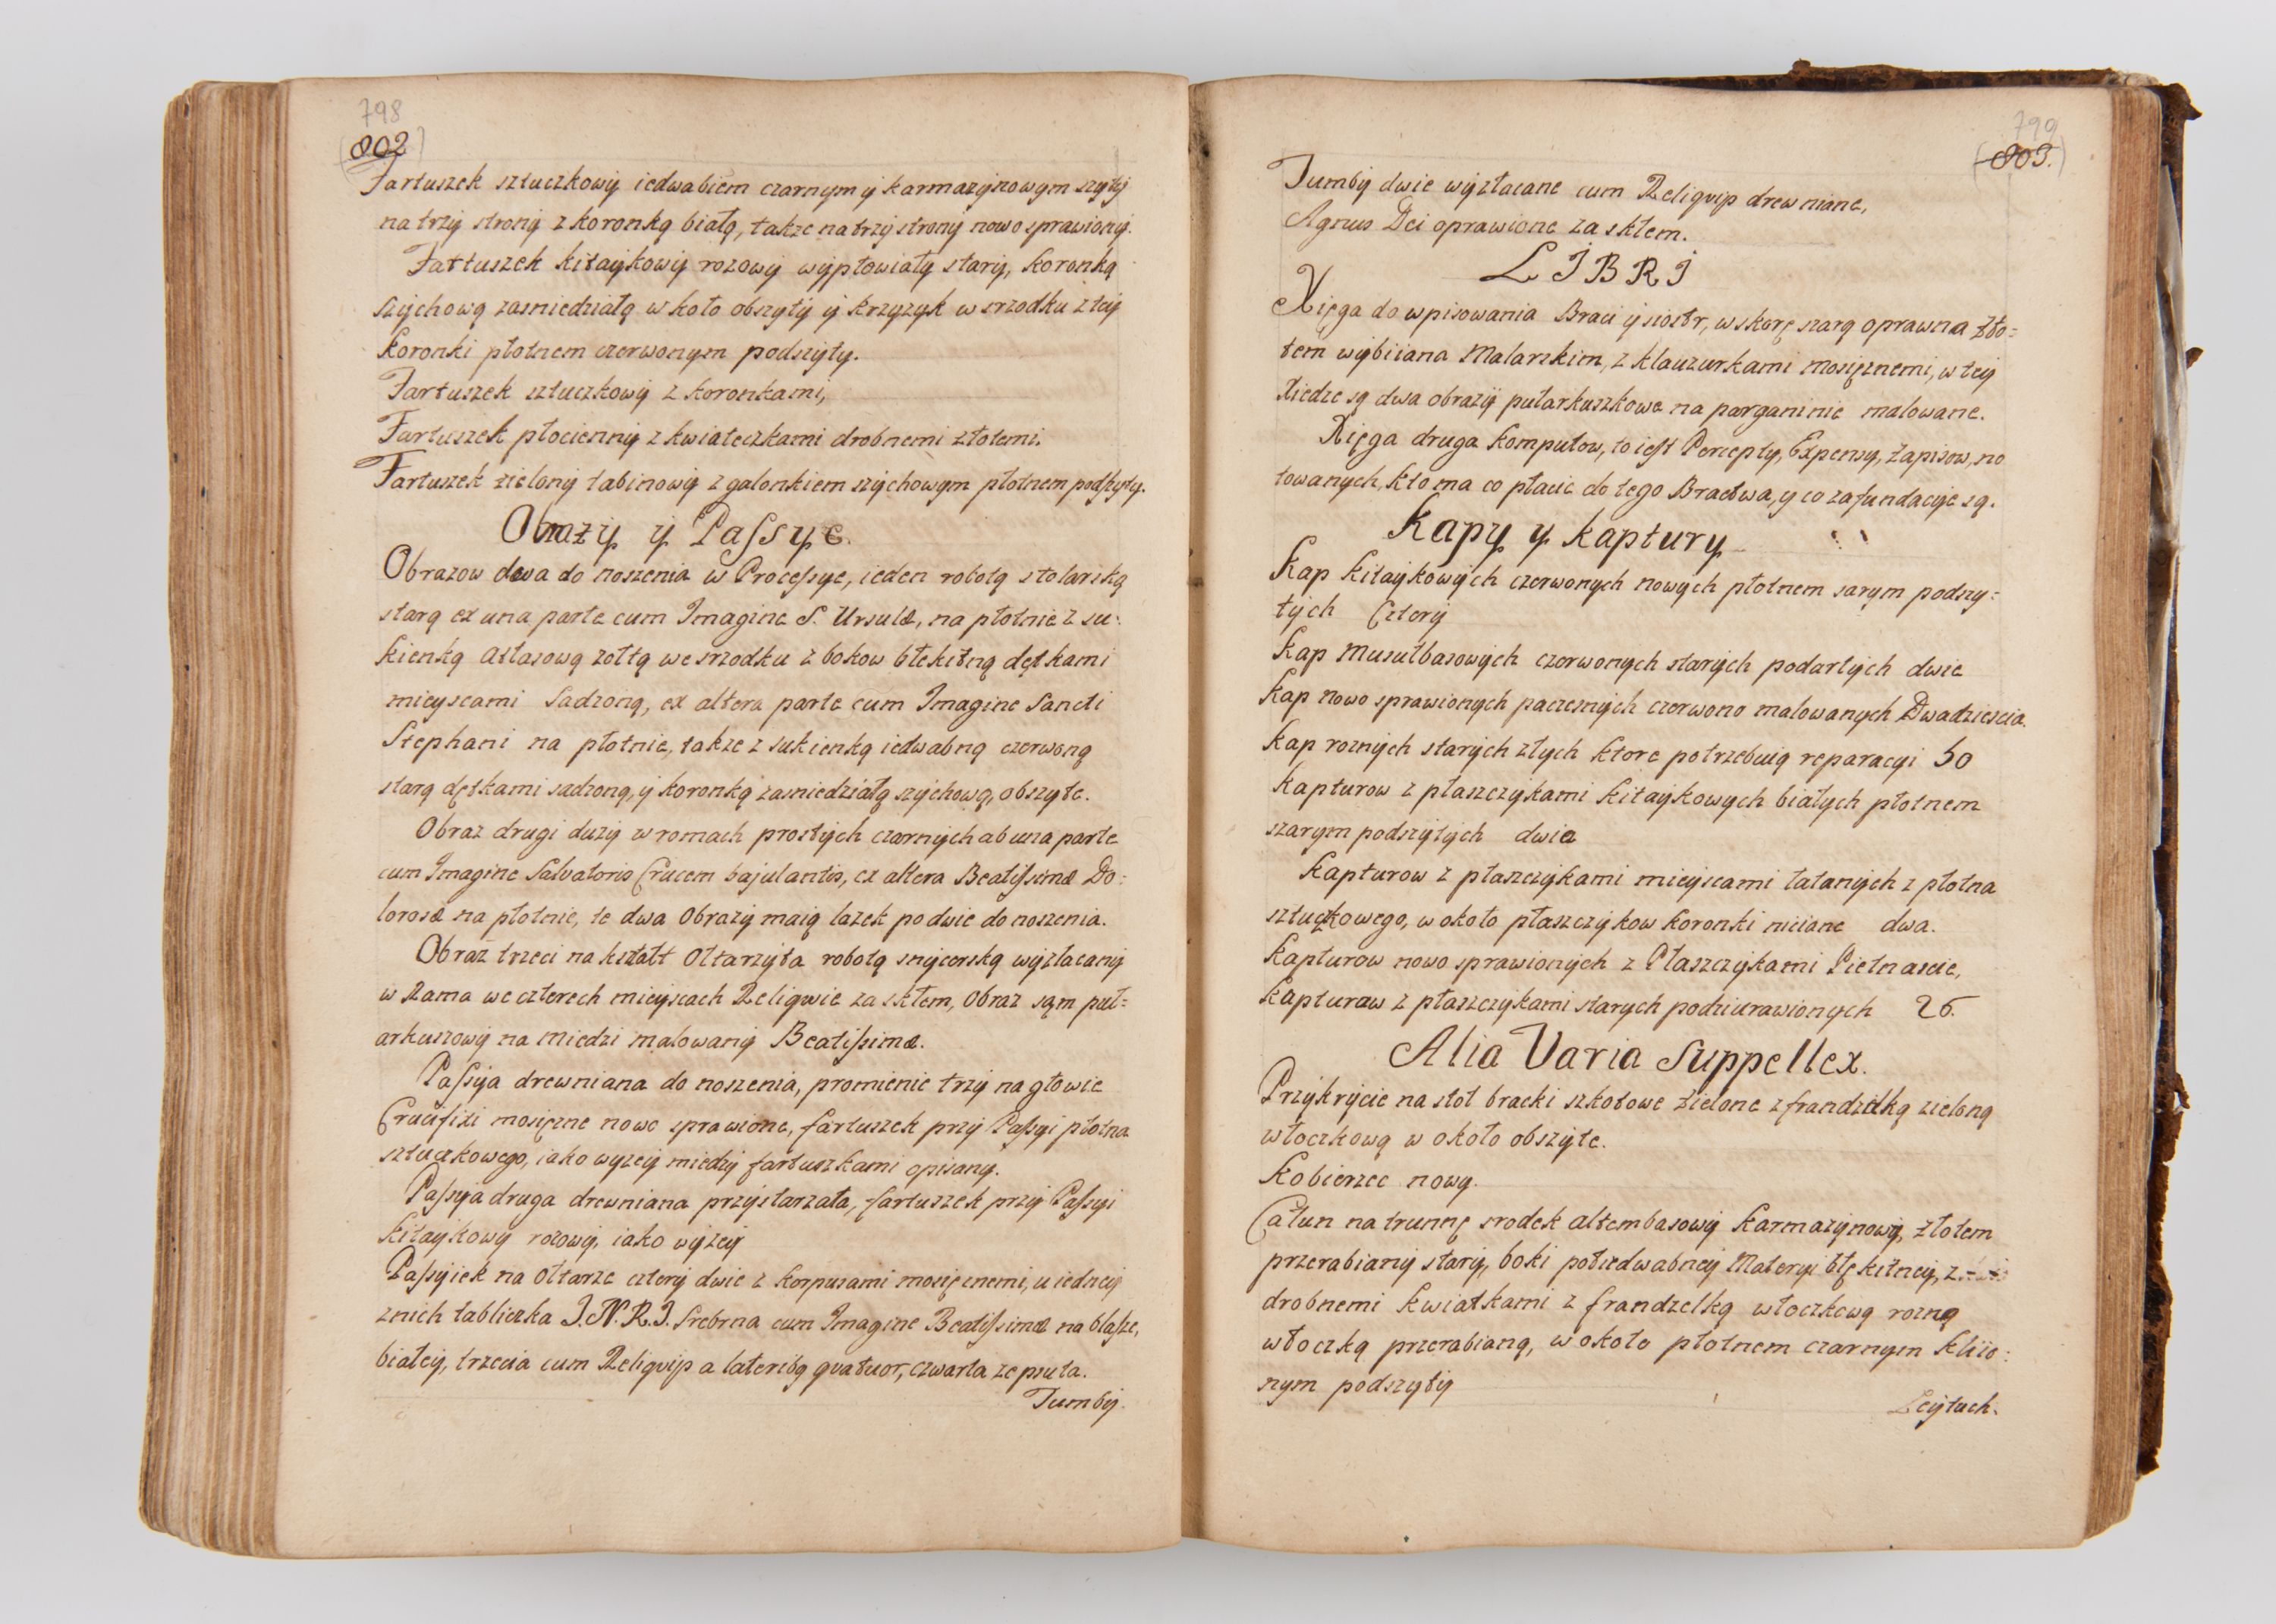 798
(802)
Fartuszek sztuczkowÿ iedwabiem czarnym ÿ karmazÿnowym szytÿ
na trzÿ stronÿ z koronką białą, także na trzÿ stronÿ nowo sprawionÿ.
Fartuszek kitaÿkowÿ rozowÿ wÿpłowiałÿ starÿ, koronką
szÿchową zasniedziałą w koło obszytÿ ÿ krzyzyk w srzodku z teÿ
koronki płotnem czerwonym podszyty.
Fartuszek sztuczkowÿ z koronkami,
Fartuszek płociennÿ z kwiateczkami drobnemi złotemi.
Fartuszek zielonÿ tabinowÿ z galonkiem szÿchowym płotnem podszyty.
Obrazÿ ÿ Passye.
Obrazow dwa do noszenia w Processye, ieden robotą stolarską
starą ex una parte cum Imagine S. Ursulæ, na płotnie z su:
kienką atłasową zołtą we srzodku z bokow błekitną dętkami
mieyscami sadzoną, ex altera parte cum Imagine Sancti
Stephani na płotnie, także z sukienką iedwabną czerwoną
starą dętkami sadzoną, ÿ koronką zasniedziałą szÿchową, obszyte.
Obraz drugi duzÿ w romach prostÿch czarnÿch ab una parte
cum Imagine Salvatoris Crucem bajulantis, ex altera Beatissimæ Do:
lorosæ na płotnie, te dwa Obrazÿ maią lazek po dwie do noszenia.
Obraz trzeci na kształt Ołtarzÿka robotą snÿcerską wÿzłacanÿ
w Rama we czterech mieÿscach Reliqwie za szkłem, Obraz sąm puł=
arkuszowÿ na miedzi malowanÿ Beatissimæ.
Passÿa drewniana do noszenia, promienie trzÿ na głowie
Crucifixi mosięzne nowo sprawione, fartuszek przÿ Passyi płotna
sztuczkowego, iako wyzeÿ miedzÿ fartuszkami opisany.
Passya druga drewniana przÿstarzała, fartuszek przÿ Passyi
kitaÿkowÿ rozowÿ, iako wÿzeÿ
Passÿiek na Ołtarze czterÿ dwie z korpusami mosięznemi, u iedneÿ
znich tabliczka J.N.R.J. srebrna cum Imagine Beatissimæ na blasze,
białeÿ, trzecia cum Reliqvijs a lateribq quatuor, czwarta ze psuta.
Tumbÿ.
799
(803.)
Tumbÿ dwie wÿzłacane cum Reliqvijs drewniane,
Agnus Dei oprawione za skłem.
LIBRI
Xięga do wpisowania Braci ÿ siostr, w skorę szarą oprawna Zło=
tem wÿbiiana Malarskim, z klauzurkami mosięznemi, w teÿ
Xiedze są dwa obrazÿ pułarkuszkowe na parganinie malowane.
Xięga druga komputow, to iest Percepty, Expensy, Zapisow, no
towanych, kto ma co płacic do tego Bractwa, y co za fundacÿe są.
Kapy ÿ kaptury
Kap kitaÿkowÿch czerwonych nowych płotnem sarym podszy=
tÿch Czterÿ
Kap Musułbasowÿch czerwonych starÿch podartÿch dwie
Kap nowo sprawionÿch paczesnÿch czerwono malowanych Dwadziescia.
Kap roznÿch starÿch złych ktore potrzebuią reparacyi 50
Kapturow z płaszczÿkami kitaÿkowych białÿch płotnem
szarym podszÿtÿch dwie
Kapturow z płaszczÿkami mieÿscami łatanÿch z płotna
sztuczkowego, w około płaszczÿkow koronki niciane dwa.
Kapturow nowo sprawionÿch z Płaszczÿkami Pietnascie,
Kapturaw z płaszczÿkami starych podziurawionych 26.
Alia Varia Suppellex.
Przÿkrÿcie na stoł bracki szkotowe zielone z frandzelką zieloną
włoczkową w około obszÿte.
Kobierzec nowy.
Całun na trunnę srodek altembasowÿ karmazÿnowÿ, złotem
przerabianÿ starÿ, boki połiedwabneÿ Materyi błękitneÿ, z
drobnemi kwiatkami z frandzelką włoczkową rozną
włoczką przerabianą, w około płotnem czarnym kliio:
nym podszytÿ
Leÿtuch.